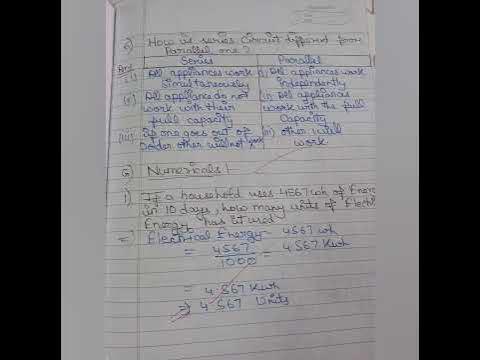 5) How is series Circuit different from
Parallel one?
Ans Series Parallel
(i) All appliances work (i) All appliances work
Simultaneously independently
(ii) All appliances do not (ii) All appliances
work with their work with the full
full capacity Capacity
(iii) If one goes out of (iii) other will
order other will not work work
6) Numericals!
1) If a household uses 4567 wh of Energy
in 10 days, how many units of Electrical
Energy has it used
=) Electrical Energy = 4567 wh
= 4567 = 4.567 Kwh
1000
= 4.567 Kwh
=> 4.567 Units